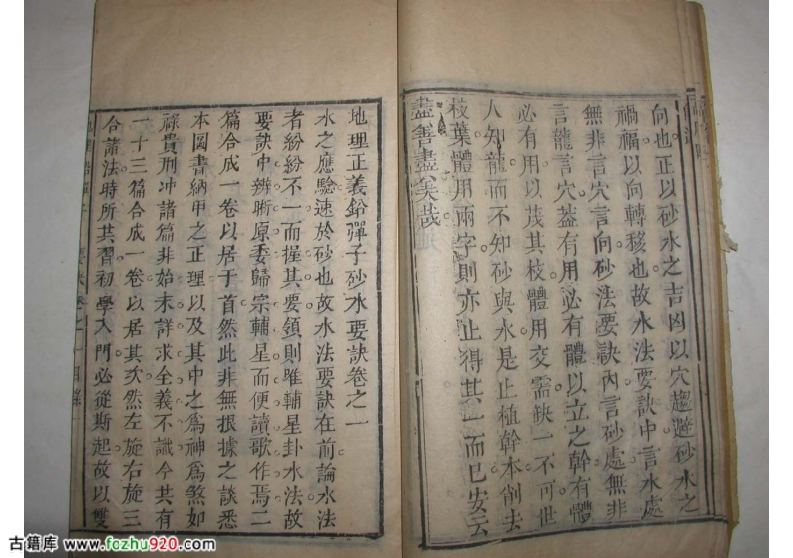 向也正以砂水之吉凶以穴趨避砂水之
禍福以向轉移也故水法要訣中言水處
無非言穴言向砂法要訣內言砂處無非
言龍言穴蓋有用必有體以立之幹有體
必有用以茂其枝體用交需缺一不可世
人知龍而不知砂與水是止植幹本削去
枝葉體用兩字則亦止得其一而已安云
盡善盡美哉
地理正義鉛彈子砂水要訣卷之一
水之應驗速於砂也故水法要訣在前論水法
者紛紛不一而握其要領則雖輔星卦水法故
要訣中辨晰原委歸宗輔星而便讀歌作焉二
篇合成一卷以居于首然此非無根據之談悉
本圖書納甲之正理以及其中之爲神爲煞如
祿貴刑冲諸篇非始末詳求全義不識今共有
一十三篇合成一卷以居其次然左旋右旋三
合諸法時所共習初學入門必從斯起故以雙
古籍库 www.fczhu920.com